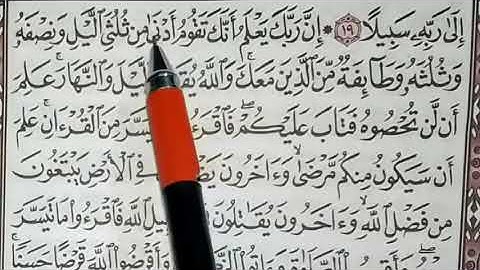 إِلَىٰ رَبِّهِۦ سَبِيلًا ١٩ ۞ إِنَّ رَبَّكَ يَعْلَمُ أَنَّكَ تَقُومُ أَدْنَىٰ مِن ثُلُثَىِ ٱلَّيْلِ وَنِصْفَهُۥ
وَثُلُثَهُۥ وَطَآئِفَةٌ مِّنَ ٱلَّذِينَ مَعَكَ ۚ وَٱللَّهُ ٱلَّيْلَ وَٱلنَّهَارَ ۚ عَلِمَ
أَن لَّن تُحْصُوهُ فَتَابَ عَلَيْكُمْ ۖ فَٱقْرَءُوا۟ مِنَ ٱلْقُرْءَانِ ۚ عَلِمَ
أَن سَيَكُونُ مِنكُم مَّرْضَىٰ ۙ وَءَاخَرُونَ فِى ٱلْأَرْضِ يَبْتَغُونَ
مِن فَضْلِ ٱللَّهِ ۙ وَءَاخَرُونَ يُقَٰتِلُونَ ٱللَّهِ ۖ فَٱقْرَءُوا۟ مَا تَيَسَّرَ
وَأَقْرِضُوا۟ ٱللَّهَ قَرْضًا حَسَنًا ۚ